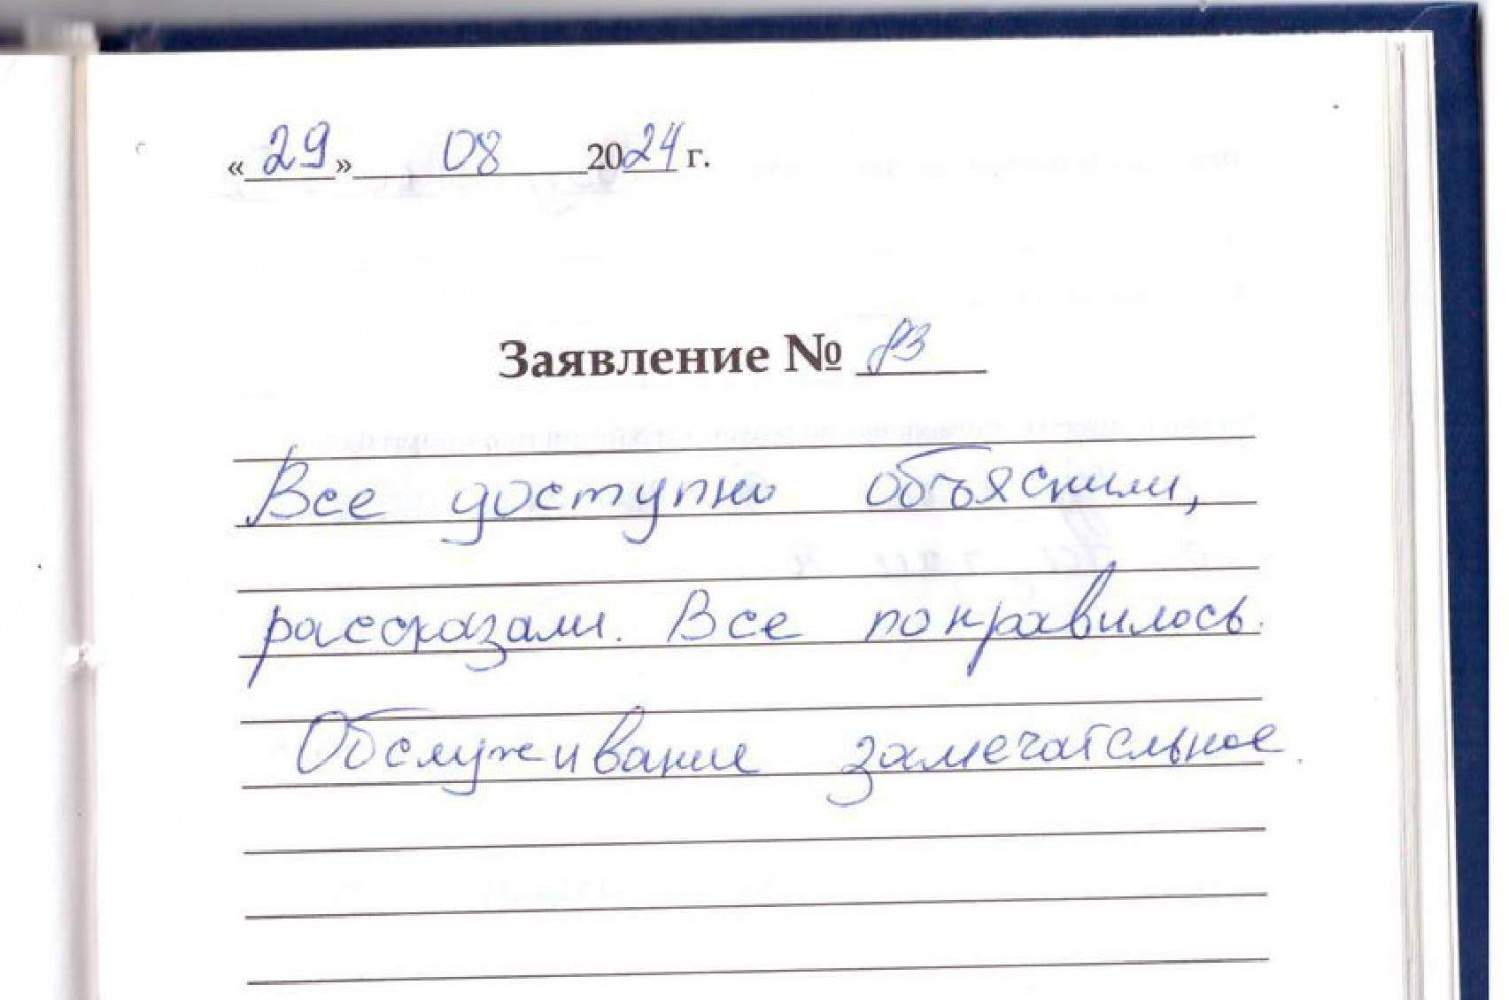 «29» 08 2024 г.
Заявление № 83
Все доступно объяснили,
рассказали. Все понравилось.
Обслуживание замечательное.